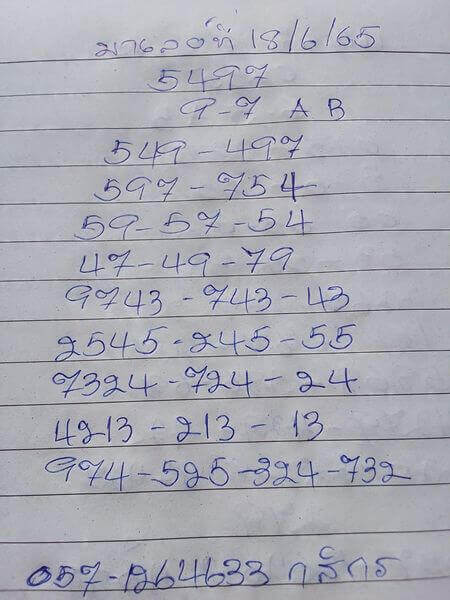 มาเลย์ที่ 18/6/65
5497
9-7 A B
549-497
597-754
59-57-54
47-49-79
9743-743-43
2545-245-55
7324-724-24
4213-213-13
974-525-324-732
057-1264633 กสิกร